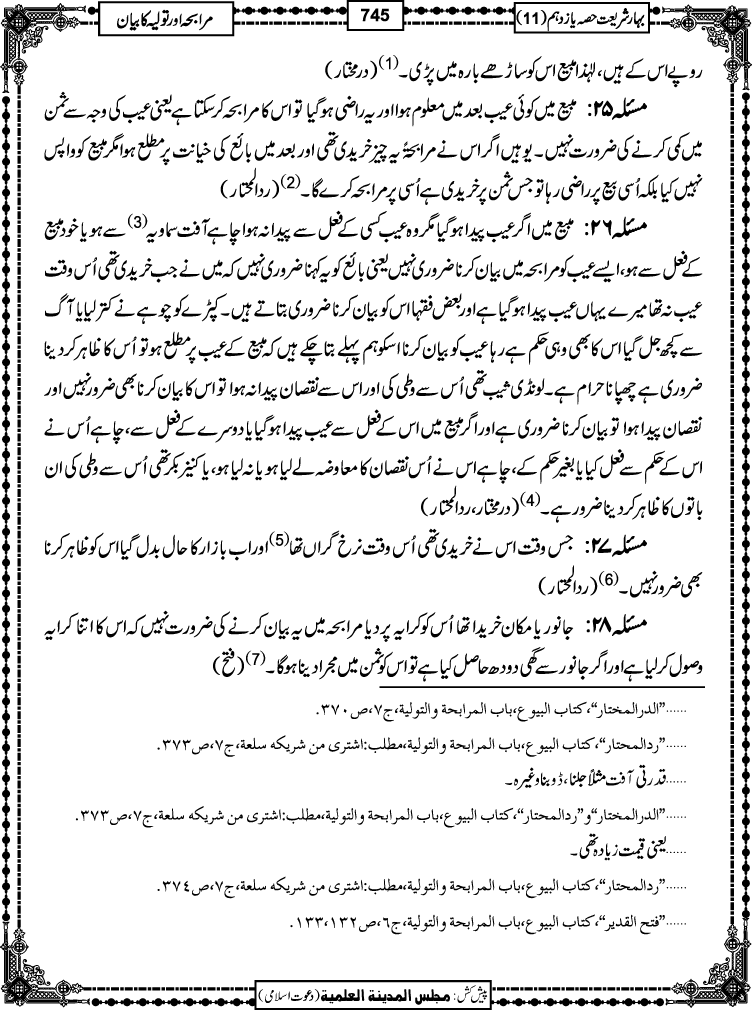 بہار شریعت حصہ یازدہم (11)
745
مرابحہ اور تولیہ کا بیان
روپے اس کے ہیں، لہٰذا مبیع اس کو ساڑھے بارہ میں پڑی۔(1) (درمختار)
مسئلہ ۲۵: مبیع میں کوئی عیب بعد میں معلوم ہوا اور یہ راضی ہوگیا تو اس کا مرابحہ کرسکتا ہے یعنی عیب کی وجہ سے ثمن
میں کمی کرنے کی ضرورت نہیں۔ یوہیں اگر اس نے مرابحۃً یہ چیز خریدی تھی اور بعد میں بائع کی خیانت پر مطلع ہوا مگر مبیع کو واپس
نہیں کیا بلکہ اُسی بیع پر راضی رہا تو جس ثمن پر خریدی ہے اُسی پر مرابحہ کرے گا۔(2) (ردالمحتار)
مسئلہ ۲۶: مبیع میں اگر عیب پیدا ہوگیا مگر وہ عیب کسی کے فعل سے پیدا نہ ہوا چاہے آفت سماویہ(3) سے ہو یا خود مبیع
کے فعل سے ہو، ایسے عیب کو مرابحہ میں بیان کرنا ضروری نہیں یعنی بائع کو یہ کہنا ضروری نہیں کہ میں نے جب خریدی تھی اُس وقت
عیب نہ تھا میرے یہاں عیب پیدا ہوگیا ہے اور بعض فقہا اس کو بیان کرنا ضروری بتاتے ہیں۔ کپڑے کو چوہے نے کتر لیا یا آگ
سے کچھ جل گیا اس کا بھی وہی حکم ہے رہا عیب کو بیان کرنا اسکو ہم پہلے بتاچکے ہیں کہ مبیع کے عیب پر مطلع ہو تو اُس کا ظاہر کر دینا
ضروری ہے چھپانا حرام ہے۔ لونڈی ثیب تھی اُس سے وطی کی اور اس سے نقصان پیدا نہ ہوا تو اس کا بیان کرنا بھی ضرور نہیں اور
نقصان پیدا ہوا تو بیان کرنا ضروری ہے اور اگر مبیع میں اس کے فعل سے عیب پیدا ہوگیا یا دوسرے کے فعل سے، چاہے اُس نے
اس کے حکم سے فعل کیا یا بغیر حکم کے، چاہے اس نے اُس نقصان کا معاوضہ لے لیا ہو یا نہ لیا ہو، یا کنیز بکر تھی اُس سے وطی کی ان
باتوں کا ظاہر کردینا ضرور ہے۔(4) (درمختار، ردالمحتار)
مسئلہ ۲۷: جس وقت اس نے خریدی تھی اُس وقت نرخ گراں تھا(5) اور اب بازار کا حال بدل گیا اس کو ظاہر کرنا
بھی ضرور نہیں۔(6) (ردالمحتار)
مسئلہ ۲۸: جانور یا مکان خریدا تھا اُس کو کرایہ پر دیا مرابحہ میں یہ بیان کرنے کی ضرورت نہیں کہ اس کا اتنا کرایہ
وصول کرلیا ہے اور اگر جانور سے گھی دودھ حاصل کیا ہے تو اس کو ثمن میں مجرا دینا ہوگا۔(7) (فتح)
......”الدرالمختار“، کتاب البیوع، باب المرابحة والتولية، ج۷، ص۳۷۰.
......”ردالمحتار“، کتاب البیوع، باب المرابحة والتولية، مطلب: اشتری من شریکه سلعة، ج۷، ص۳۷۳.
......قدرتی آفت مثلاً جلنا، ڈوبنا وغیرہ۔
......”الدرالمختار“ و ”ردالمحتار“، کتاب البیوع، باب المرابحة والتولية، مطلب: اشتری من شریکه سلعة، ج۷، ص۳۷۳.
......یعنی قیمت زیادہ تھی۔
......”ردالمحتار“، کتاب البیوع، باب المرابحة والتولية، مطلب: اشتری من شریکه سلعة، ج۷، ص۳۷٤.
......”فتح القدیر“، کتاب البیوع، باب المرابحة والتولية، ج٦، ص۱۳۲، ۱۳۳.
پیش کش: مجلس المدینة العلمیة (دعوت اسلامی)